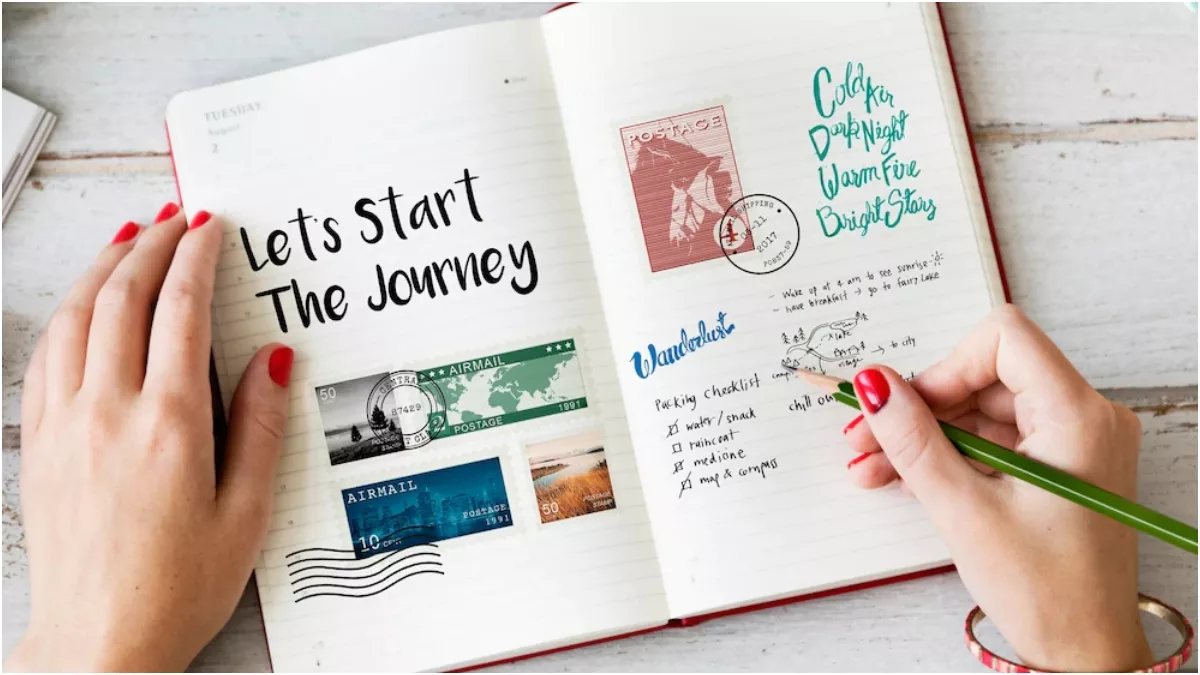 TUESDAY
August
2
Let's Start
The Journey
50
POSTAGE
STAMP
CENTRAL
87429
AIRMAIL
POSTAGE
1991
AIRMAIL
POSTAGE
1991
10
50
POSTAGE
STAMP
POSTAGE
SHIPPING
08-11
2017
Cold Air
Dark Night
Warm Fire
Bright Stars
- Wake up at 4 am to see sunrise
- have breakfast → go to fairy Lake
lake
village
→ to city
chill
Wanderlust
Packing checklist
water/snack
raincoat
medicine
map & compass